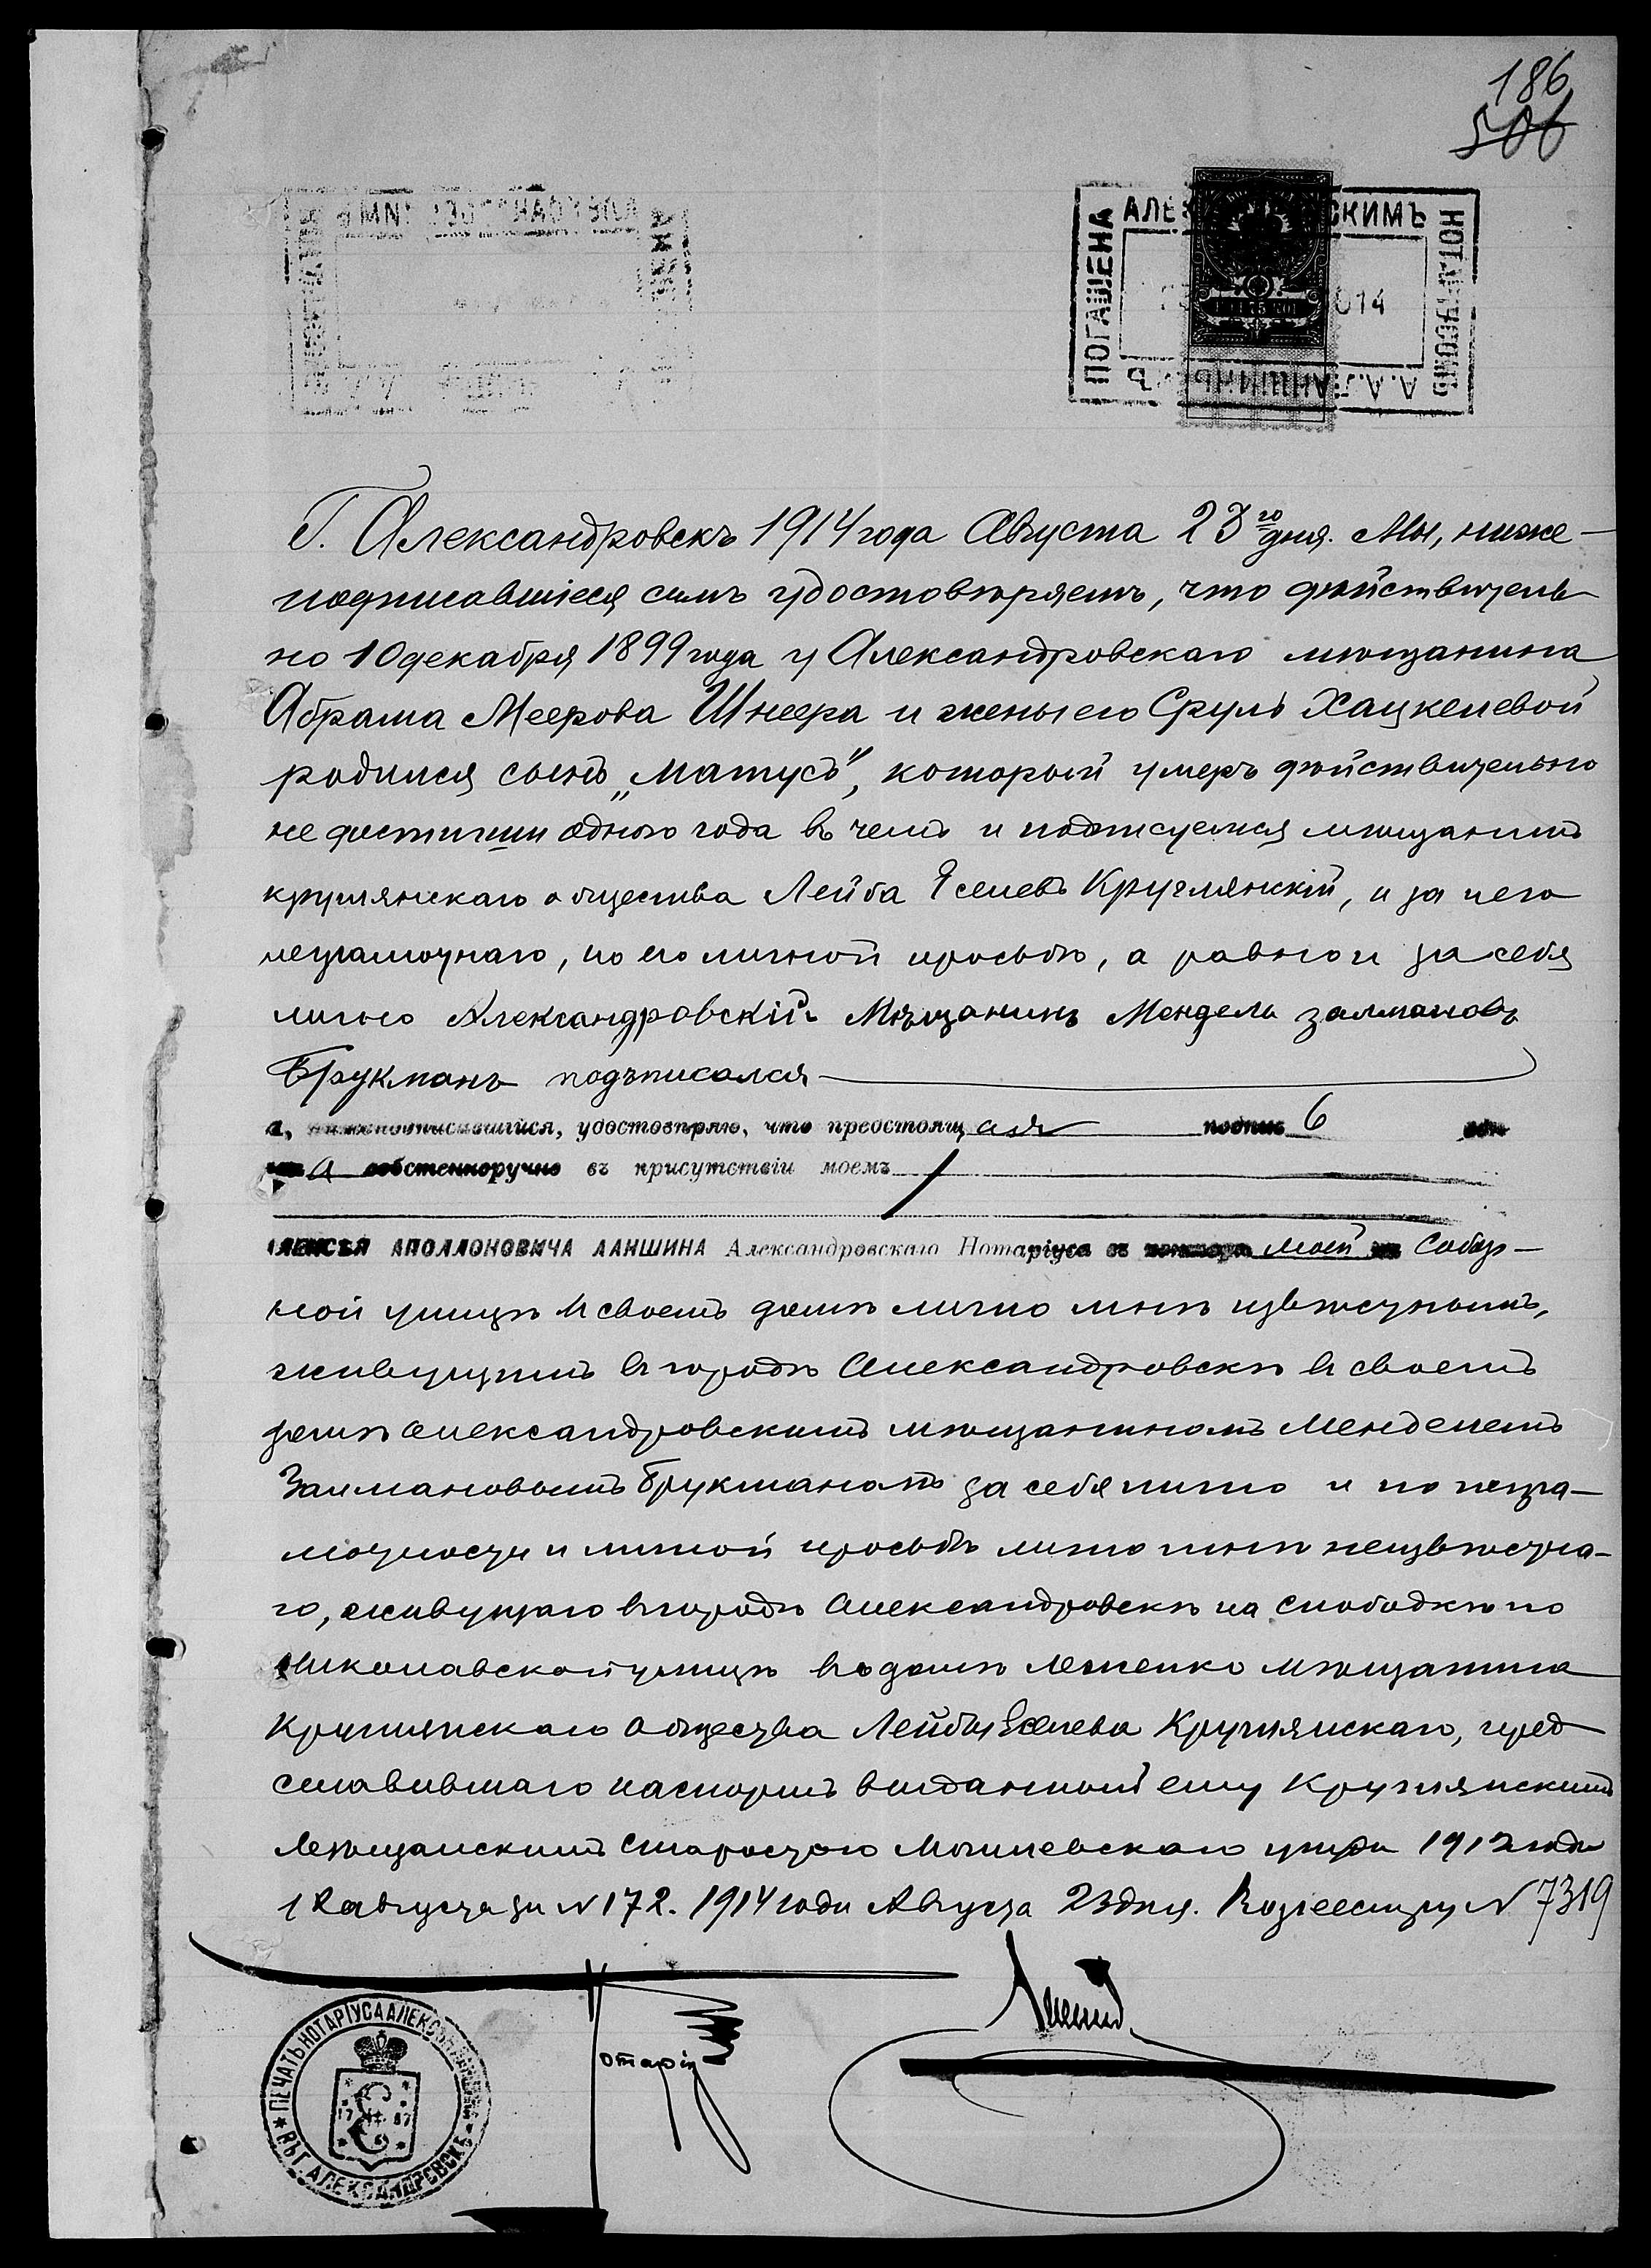 186
506
ПОГАШЕНА
АЛЕКСКИМЪ
НОТАРІУСОМЪ
А.А.ЛАНШИНЫМЪ
Г. Александровскъ 1914 года Августа 23го дня. Мы, ниже-
подписавшіеся симъ удостовѣряемъ, что дѣйствитель-
но 10 декабря 1899 года у Александровскаго мѣщанина
Абрама Меерова Шнеера и жены его Сруль Хацкелевой
родился сынъ „Матусъ", который умеръ дѣйствительно
не достигши одного года въ чемъ и подписуемся мѣщанинъ
круглянскаго общества Лейба Іселевъ Круглянскій, и за него
неграмотнаго, по его личной просьбѣ, а равно и за себя
лично Александровскій Мѣщанинъ Мендель Залмановъ
Брукманъ подъписался
я, нижеподписавшійся, удостовѣряю, что предстоящая подпись сдѣ-
лана собственноручно въ присутствіи моемъ
АЛЕКСѢЯ АПОЛЛОНОВИЧА ЛАНШИНА Александровскаго Нотаріуса въ конторѣ моей на Собор-
ной улицѣ въ своемъ домѣ лично мнѣ извѣстнымъ,
живущимъ въ городѣ Александровскѣ въ своемъ
домѣ Александровскимъ мѣщаниномъ Менделемъ
Залмановымъ Брукманомъ за себя лично и по негра-
мотности и личной просьбѣ лично мнѣ неизвѣстна-
го, живущаго въ городѣ Александровскѣ на Слободкѣ по
Николаевской улицѣ въ домѣ мѣщанина
Круглянскаго общества Лейбы Іселева Круглянскаго, пред-
ставившаго паспортъ выданный ему Круглянскимъ
Мѣщанскимъ Старостою Могилевскаго уѣзда 1912 года
12 августа за № 172. 1914 года Августа 23 дня. По реестру № 7319
Нотаріусъ Ланшинъ
ПЕЧАТЬ НОТАРІУСА АЛЕКСѢЯ ЛАНШИНА
ВЪ Г. АЛЕКСАНДРОВСКѢ
17 87